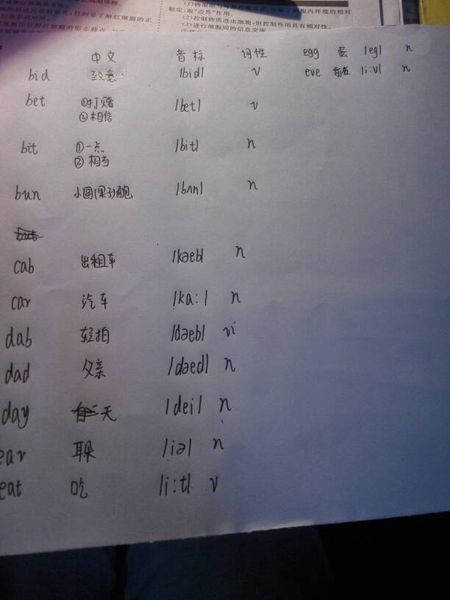 中文 音标 词性 egg 蛋 |eg| n
bid 致意 |bid| v eve |i:v| n
bet ①打赌 |bet| v
②相信
bit ①一点 |bit| n
②相当
bun 小圆(果子)面包 |bʌn| n
cab 出租车 |kæb| n
car 汽车 |ka:| n
dab 轻拍 |dæb| vi
dad 父亲 |dæd| n
day 天 |dei| n
ear |iə| n
eat 吃 |i:t| v